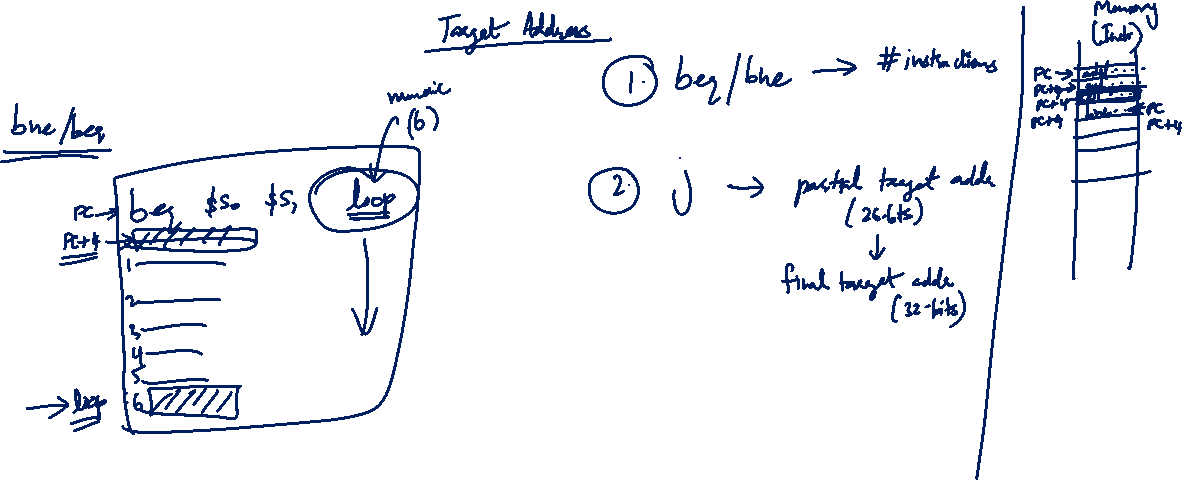 Target Address
bne/beq
numeric
(6)
PC → beq $S0 $S1 loop
PC+4 →
1
2
3
4
5
→ loop 6
1. beq/bne → # instructions
2. j → partial target addr
(26-bits)
↓
final target addr
(32-bits)
Memory
(Instr)
PC →
PC+4 →
PC+4
PC+4
PC
PC+4